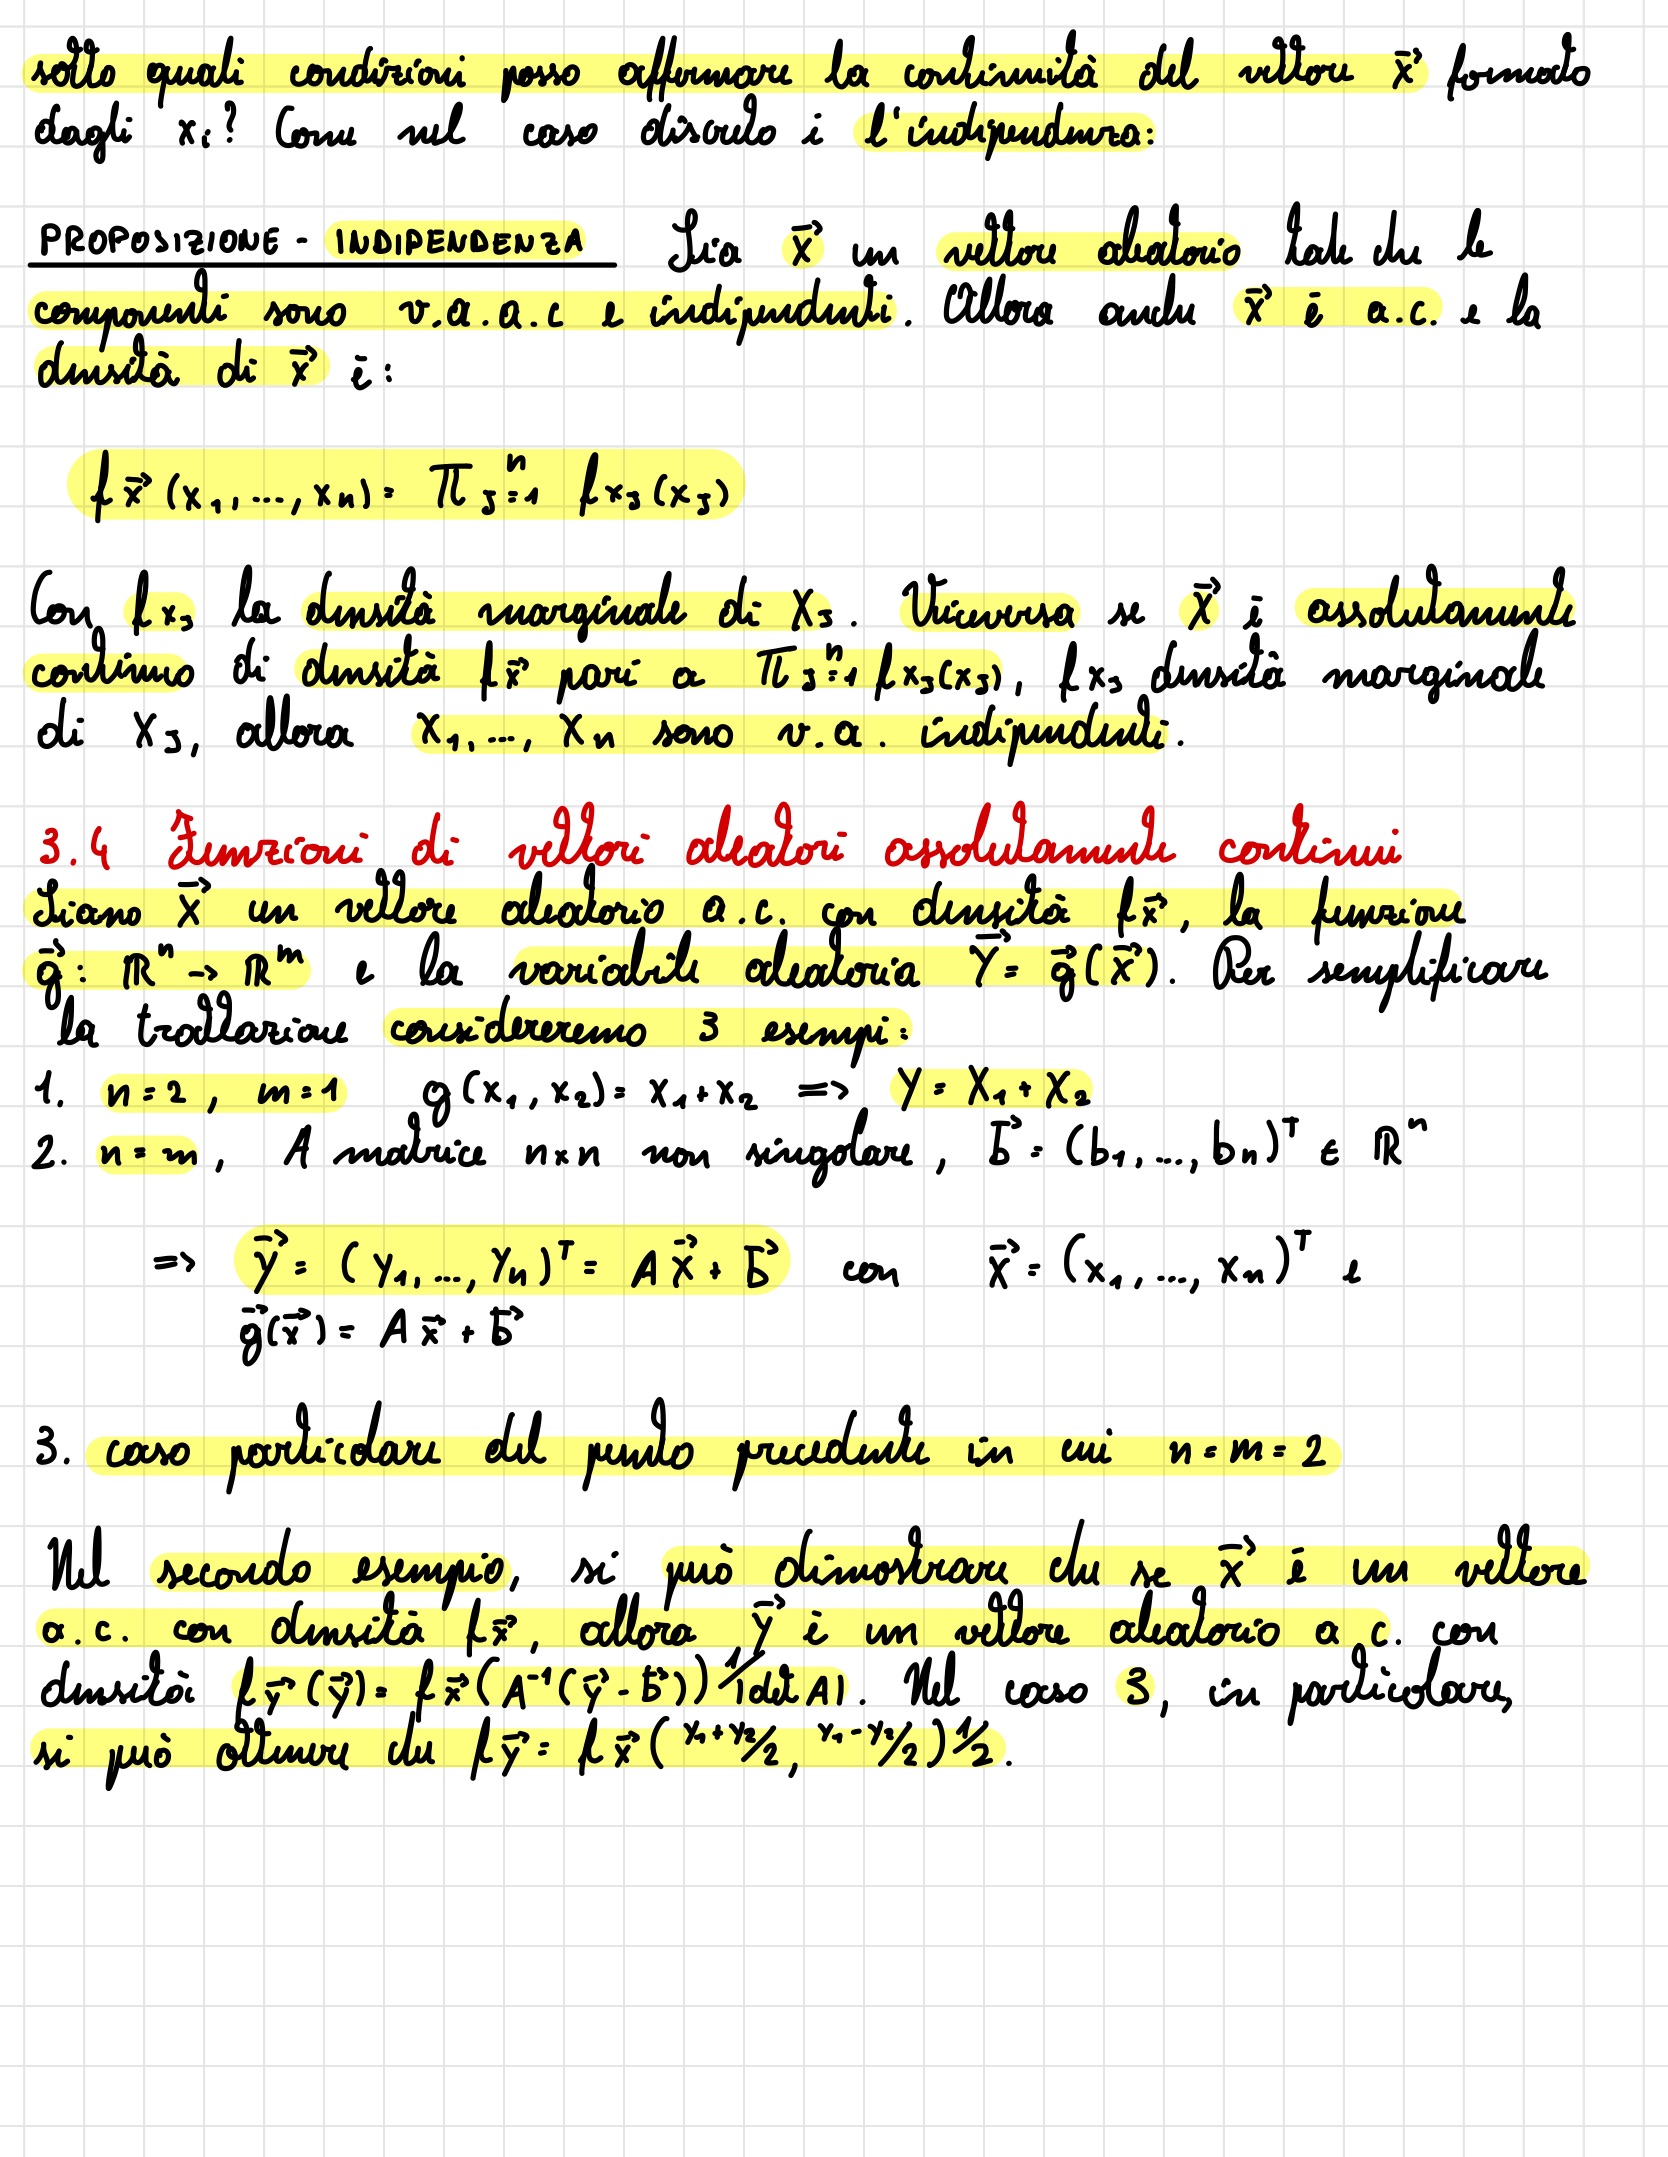 sotto quali condizioni posso affermare la continuità del vettore x⃗ formato
dagli xi? Come nel caso discreto è l'indipendenza:
PROPOSIZIONE - INDIPENDENZA Sia x⃗ un vettore aleatorio tale che le
componenti sono v.a.a.c e indipendenti. Allora anche x⃗ è a.c. e la
densità di x⃗ è:
f x⃗ (x1, ..., xn) = π J=1^n f xJ (xJ)
Con f xJ la densità marginale di XJ. Viceversa se X⃗ è assolutamente
continuo di densità f x⃗ pari a π J=1^n f xJ (xJ), f xJ densità marginale
di XJ, allora X1, ..., Xn sono v.a. indipendenti.
3.4 Funzioni di vettori aleatori assolutamente continui
Siano X⃗ un vettore aleatorio a.c. con densità f x⃗, la funzione
g⃗: ℝ^n → ℝ^m e la variabile aleatoria Y⃗ = g⃗(x⃗). Per semplificare
la trattazione considereremo 3 esempi:
1. n=2, m=1 g(x1, x2) = x1+x2 => Y = X1 + X2
2. n=m, A matrice n×n non singolare, b⃗ = (b1, ..., bn)^T ∈ ℝ^n
=> y⃗ = (y1, ..., yn)^T = A x⃗ + b⃗ con x⃗ = (x1, ..., xn)^T e
g⃗(x⃗) = A x⃗ + b⃗
3. caso particolare del punto precedente in cui n=m=2
Nel secondo esempio, si può dimostrare che se x⃗ è un vettore
a.c. con densità f x⃗, allora y⃗ è un vettore aleatorio a c. con
densità f y⃗ (y⃗) = f x⃗ (A^-1 (y⃗ - b⃗)) 1/|det A|. Nel caso 3, in particolare,
si può ottenere che f y⃗ = f x⃗ (y1+y2/2, y1-y2/2) 1/2.